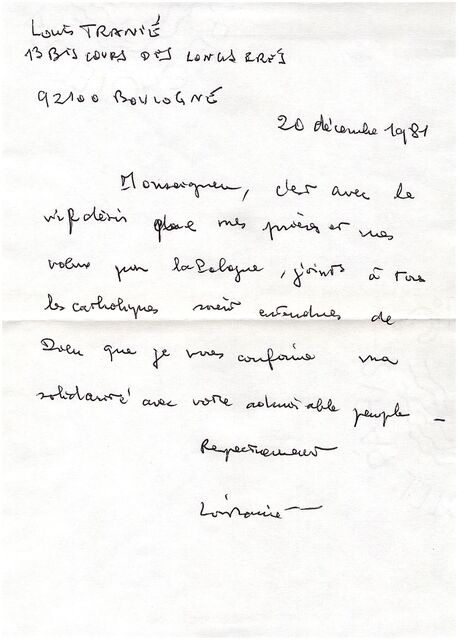 Louis TRANIÉ
13 BIS COURS DES LONGS PRÉS
92100 BOULOGNE
20 décembre 1981
Monseigneur, c'est avec le
vif désir que mes prières et mes
voeux pour la Pologne, joints à tous
les catholiques soient entendues de
Dieu que je vous confirme ma
solidarité avec votre admirable peuple -
Respectueusement